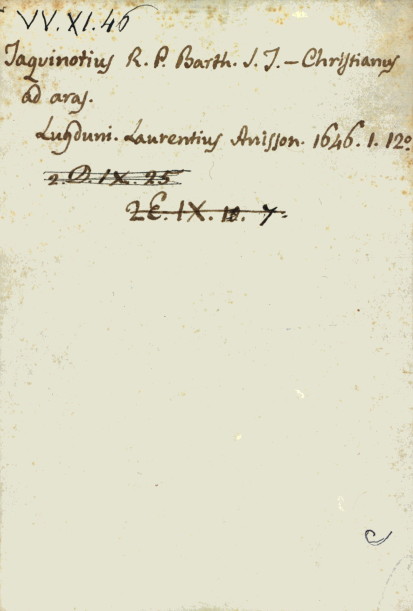 VV.XI.46
Jaquinotius R. P. Barth. S. J. – Christianus
ad aras.
Lugduni. Laurentius Anisson. 1646. 1. 12º
2.D.IX.25
2E.IX.10.7.